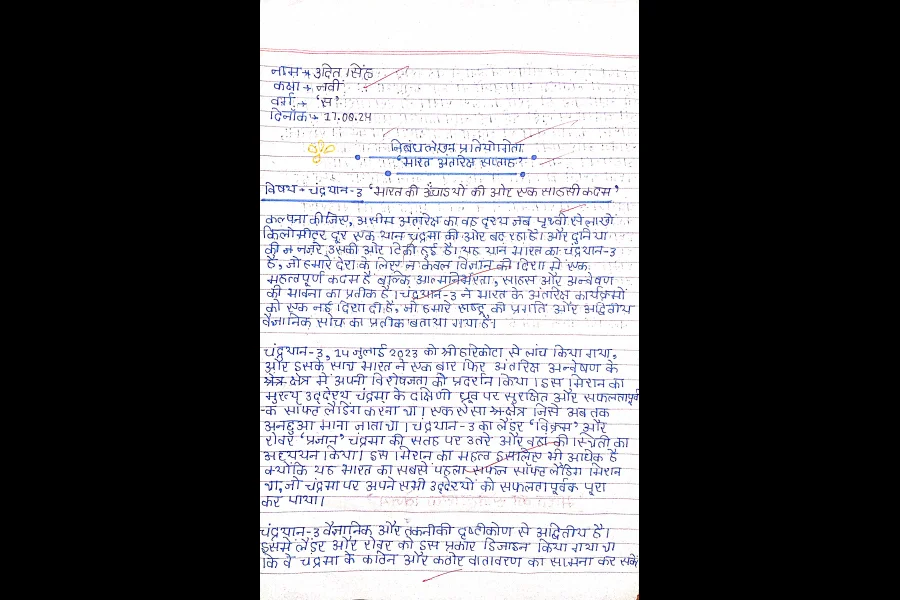 नाम → उदित सिंह
कक्षा → नवीं
वर्ग → 'स'
दिनाँक → 17.08.24
निबंधलेखन प्रतियोगिता
'भारत अंतरिक्ष सप्ताह'
विषय - चंद्रयान-3 'भारत की ऊँचाइयों की ओर एक साहसी कदम'
कल्पना कीजिए, असीम अंतरिक्ष का वह दृश्य जब पृथ्वी से लाखों
किलोमीटर दूर एक यान चंद्रमा की ओर बढ़ रहा है। और दुनिया
की न नज़रे उसकी ओर टिकी हुई है। यह यान भारत का चंद्रयान-3
है, जो हमारे देश के लिए न केवल विज्ञान की दिशा में एक
महत्वपूर्ण कदम है बल्कि आत्मनिर्भरता, साहस और अन्वेषण
की भावना का प्रतीक है। चंद्रयान-3 ने भारत के अंतरिक्ष कार्यक्रमों
को एक नई दिशा दी है, जो हमारे राष्ट्र की प्रगति और अद्वितीय
वैज्ञानिक सोच का प्रतीक बताया गया है।
चंद्रयान-3, 14 जुलाई 2023 को श्रीहरिकोटा से लांच किया गया,
और इसके साथ भारत ने एक बार फिर अंतरिक्ष अन्वेषण के
क्षेत्र में अपनी विशेषज्ञता को प्रदर्शन किया। इस मिशन का
मुख्य उद्देश्य चंद्रमा के दक्षिणी ध्रुव पर सुरक्षित और सफलतापूर्व
-क सॉफ्ट लैंडिंग करना था। एक ऐसा क्षेत्र जिसे अब तक
अनछुआ माना जाता था। चंद्रयान-3 का लैंडर 'विक्रम' और
रोवर 'प्रज्ञान' चंद्रमा की सतह पर उतरे और वहां की स्थिती का
अध्ययन किया। इस मिशन का महत्व इसलिए भी अधिक है
क्योंकि यह भारत का सबसे पहला सफल सॉफ्ट लैंडिंग मिशन
था, जो चंद्रमा पर अपने सभी उद्देश्यों को सफलतापूर्वक पूरा
कर पाया।
चंद्रयान-3 वैज्ञानिक और तकनीकी दृष्टीकोण से अद्वितीय है।
इसमें लैंडर और रोवर को इस प्रकार डिजाइन किया गया था
कि वे चंद्रमा के कठिन और कठोर वातावरण का सामना कर सकें